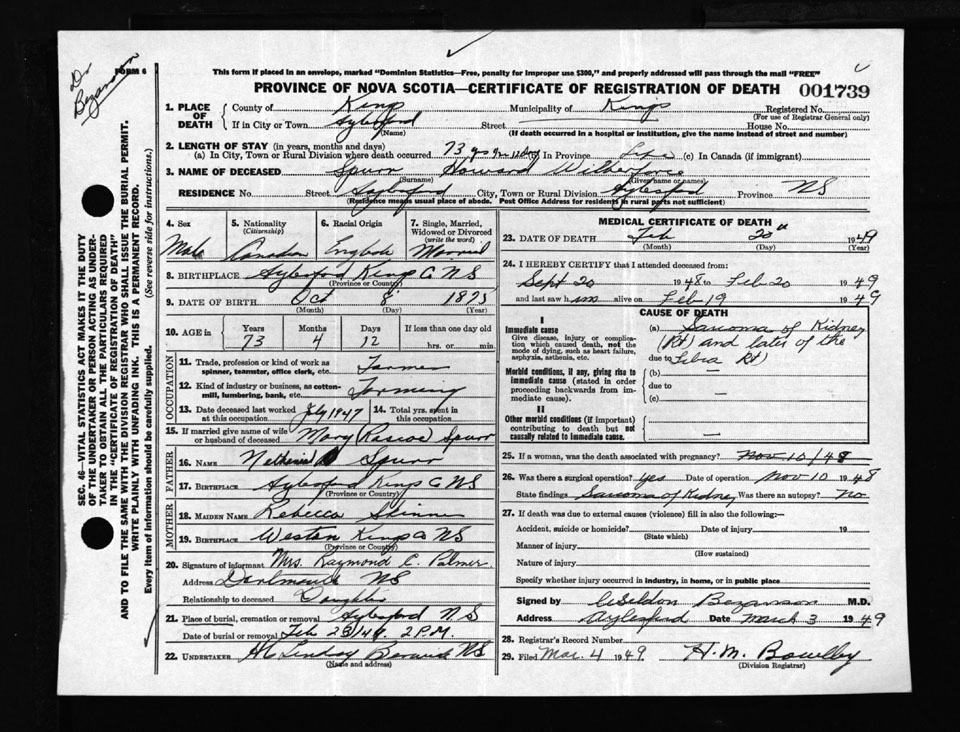 Dr Bezanson
FORM 6
This form if placed in an envelope, marked "Dominion Statistics—Free, penalty for improper use $300," and properly addressed will pass through the mail "FREE"
PROVINCE OF NOVA SCOTIA—CERTIFICATE OF REGISTRATION OF DEATH 001739
1. PLACE OF DEATH
County of Kings Municipality of Kings Registered No.
(For use of Registrar General only)
If in City or Town Aylesford Street House No.
(Name) (If death occurred in a hospital or institution, give the name instead of street and number)
2. LENGTH OF STAY (in years, months and days)
(a) In City, Town or Rural Division where death occurred 73 yrs 4m 12 days In Province Life (c) In Canada (if immigrant)
3. NAME OF DECEASED Spurr Howard
(Surname) (Given name or names)
RESIDENCE No. Street Aylesford City, Town or Rural Division Aylesford Province NS
(Residence means usual place of abode. Post Office Address for residents in rural parts not sufficient)
4. Sex Male
5. Nationality (Citizenship) Canadian
6. Racial Origin English
7. Single, Married, Widowed or Divorced (write the word) Married
8. BIRTHPLACE Aylesford Kings Co NS
(Province or Country)
9. DATE OF BIRTH Oct 8 1875
(Month) (Day) (Year)
10. AGE in Years Months Days If less than one day old
73 4 12 hrs. or min.
OCCUPATION
11. Trade, profession or kind of work as spinner, teamster, office clerk, etc. Farmer
12. Kind of industry or business, as cotton-mill, lumbering, bank, etc. Farming
13. Date deceased last worked at this occupation July 1947
14. Total yrs. spent in this occupation
15. If married give name of wife or husband of deceased Mary (Pascoe) Spurr
FATHER
16. NAME Spurr
17. BIRTHPLACE Aylesford Kings Co NS
(Province or Country)
MOTHER
18. MAIDEN NAME Rebecca
19. BIRTHPLACE Weston Kings Co NS
(Province or Country)
20. Signature of informant Mrs. Raymond C. Palmer
Address Dartmouth NS
Relationship to deceased Daughter
21. Place of burial, cremation or removal Aylesford NS
Date of burial or removal Feb 23/49. 2 P.M.
22. UNDERTAKER Lindsay Berwick NS
(Name and address)
MEDICAL CERTIFICATE OF DEATH
23. DATE OF DEATH Feb 20th 1949
(Month) (Day) (Year)
24. I HEREBY CERTIFY that I attended deceased from:
Sept 20 1948 to Feb 20 1949
and last saw him alive on Feb 19 1949
CAUSE OF DEATH
I
Immediate cause
Give disease, injury or complication which caused death, not the mode of dying, such as heart failure, asphyxia, asthenia, etc.
(a) Sarcoma of Kidney
(Rt) and later of the
due to Tibia Rt)
Morbid conditions, if any, giving rise to immediate cause (stated in order proceeding backwards from immediate cause).
(b) —
due to
(c) —
II
Other morbid conditions (if important) contributing to death but not causally related to immediate cause.
—
25. If a woman, was the death associated with pregnancy? Nov 10/48
26. Was there a surgical operation? yes Date of operation Nov 10 1948
State findings Sarcoma of Kidney Was there an autopsy? No
27. If death was due to external causes (violence) fill in also the following:—
Accident, suicide or homicide? Date of injury 19
(State which)
Manner of injury
(How sustained)
Nature of injury
Specify whether injury occurred in industry, in home, or in public place
Signed by Weldon Bezanson M.D.
Address Aylesford Date March 3 1949
28. Registrar's Record Number
29. Filed Mar. 4 1949 H. M. Bowlby
(Division Registrar)
SEC. 46—VITAL STATISTICS ACT MAKES IT THE DUTY
OF THE UNDERTAKER OR PERSON ACTING AS UNDER-
TAKER TO OBTAIN ALL THE PARTICULARS REQUIRED
IN THE "CERTIFICATE OF REGISTRATION OF DEATH"
AND TO FILE THE SAME WITH THE DIVISION REGISTRAR WHO SHALL ISSUE THE BURIAL PERMIT.
WRITE PLAINLY WITH UNFADING INK. THIS IS A PERMANENT RECORD.
Every item of information should be carefully supplied. (See reverse side for instructions.)